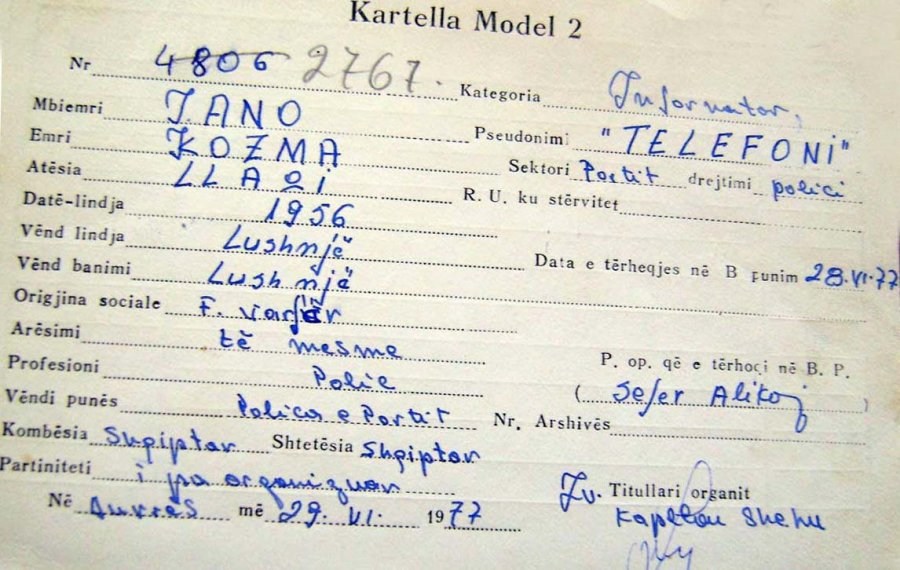 Kartella Model 2
Nr 4806 2767. Kategoria Informator,
Mbiemri JANO Pseudonimi "TELEFONi"
Emri KOZMA Sektori Portit drejtimi polici
Atësia LLAQi R. U. ku stërvitet
Datë-lindja 1956
Vënd lindja Lushnjë Data e tërheqjes në B punim 28.VI.77
Vënd banimi Lushnjë
Origjina sociale F. varfër
Arësimi të mesme P. op. që e tërhoqi në B. P.
Profesioni Polic ( Sefer Alikaj )
Vëndi punës Polica e Portit Nr. Arshivës
Kombësia Shqiptar Shtetësia Shqiptar
Partiniteti i pa organizuar
Zv. Titullari organit
Në Durrës më 29. VI. 1977 Kapiten Shehu